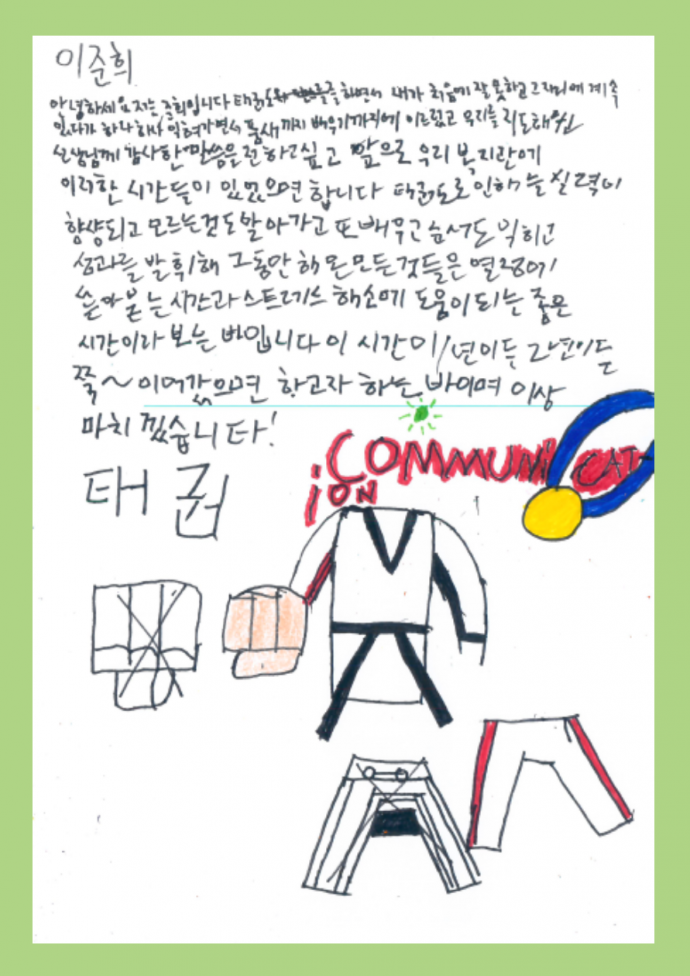 이준희
안녕하세요 저는 준희입니다 태권도를 하면서 내가 처음에 잘 못하고 그 자리에 계속
있다가 하나하나 익혀가면서 품새까지 배우기까지에 이르렀고 우리를 리드해주신
선생님께 감사한 말씀을 전하고 싶고 앞으로 우리 복지관에
이러한 시간들이 있었으면 합니다 태권도로 인해 늘 실력이
향상되고 모르는것도 알아가고 또 배우고 순서도 익히고
성과를 발휘해 그동안 해온 모든것들은 열정에
쏟아 붇는 시간과 스트레스 해소에 도움이 되는 좋은
시간이라 보는 바입니다 이 시간이 1년이든 2년이든
쭉~ 이어갔으면 하고자 하는 바이며 이상
마치 겠습니다!
태권
COMMUNICAT
iON